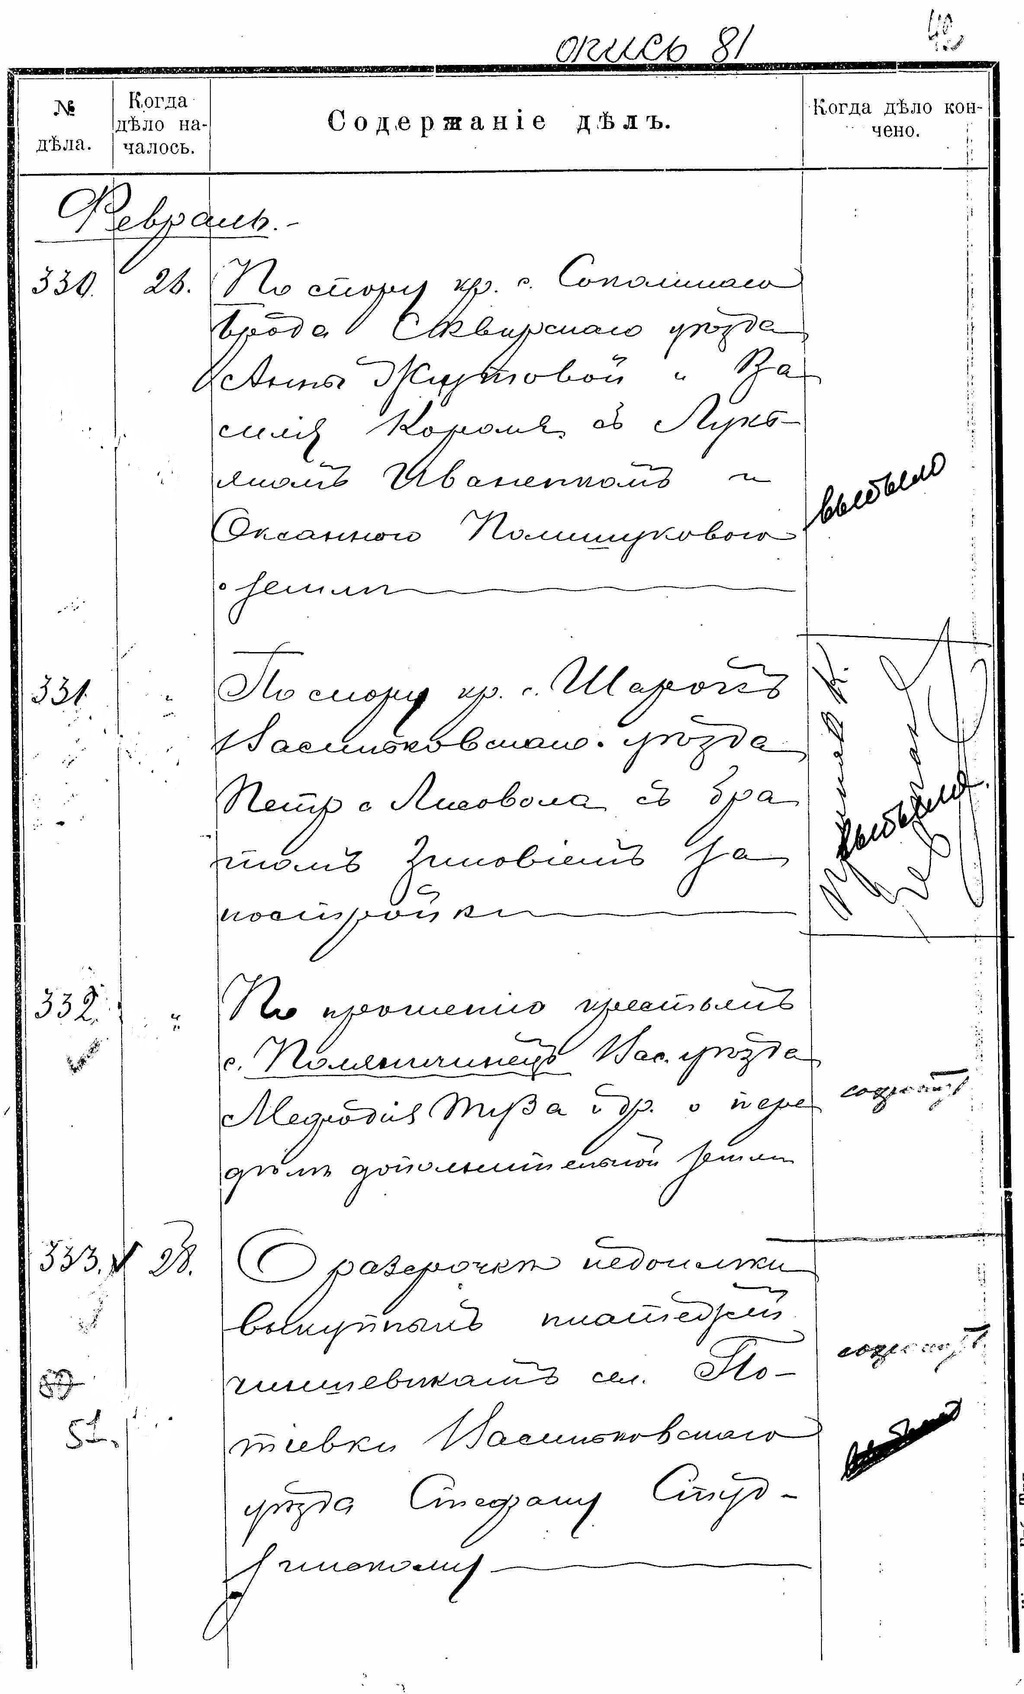 опись 81
42
№ дѣла.
Когда дѣло на-чалось.
Содержаніе дѣлъ.
Когда дѣло кон-чено.
Февраль.-
330. 26. По спору кр. с. Соколинаго
Брода Сквирскаго уѣзда
Анны Жутовой и Ва
силія Короля съ Лукь-
яномъ Иваненкомъ и
Оксанною Полищуковою
о земли
выбыло
331. " По спору кр. с. Шарокъ
Васильковскаго уѣзда
Петра Лисовола съ бра
томъ Зиновіемъ за
постройки
выбыло
332. " По прошенію крестьянъ
с. Поляниченецъ Вас. уѣзда
Мефодія и др. о пере
дѣлѣ дополнительной земли
333. 28. О разсрочкѣ недоимки
выкупныхъ платежей
чиншевикамъ сел. По-
тіевки Васильковскаго
уѣзда Стефану Студ-
зинскому
51.